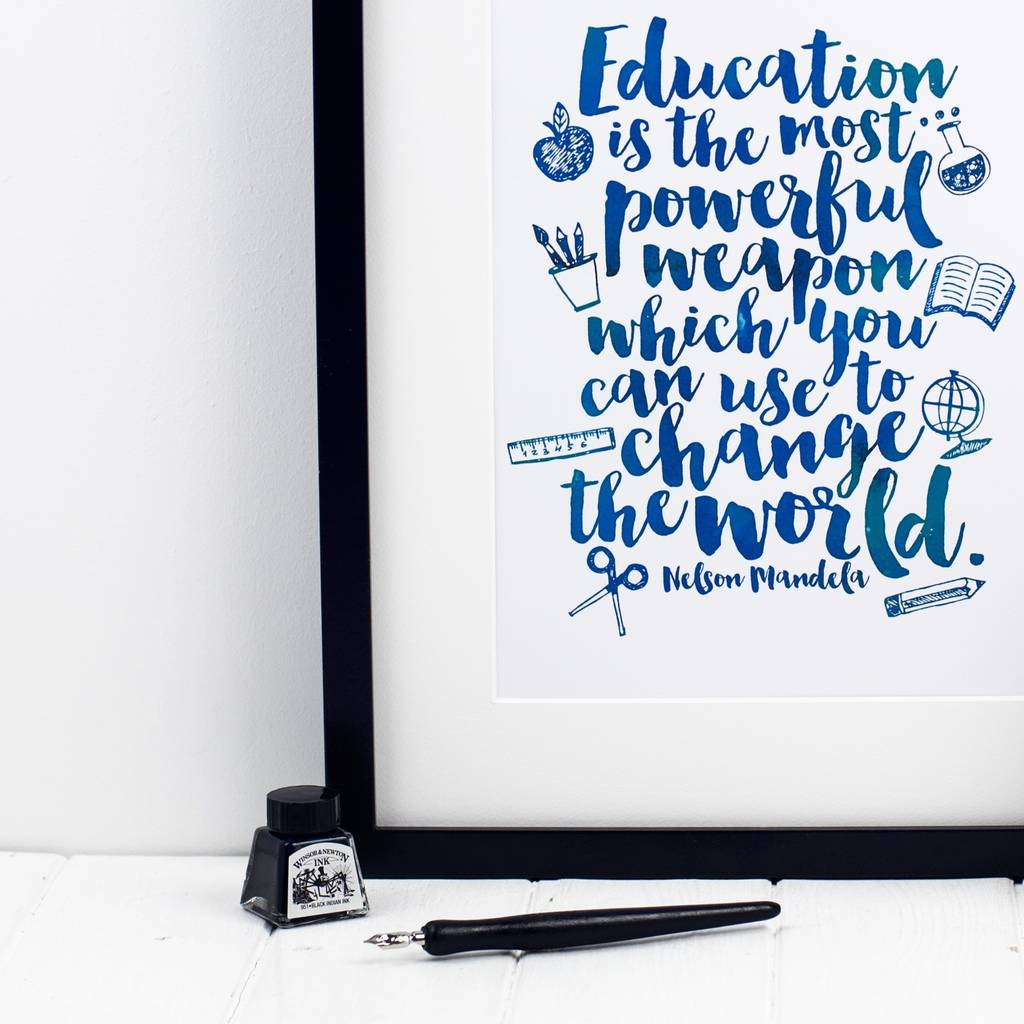 Education
is the most
powerful
weapon
which you
can use to
change
the world.
Nelson Mandela
1 2 3 4 5 6
WINSOR & NEWTON
INK
951 • BLACK INDIAN INK